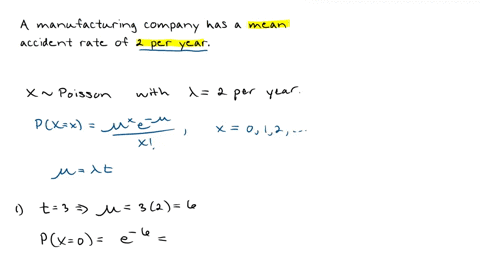 A manufacturing company has a mean
accident rate of 2 per year.
X ~ Poisson with λ = 2 per year.
P(X=x) = μˣe^-μ / x! , x = 0,1,2,...
μ = λt
1) t=3 ⇒ μ = 3(2) = 6
P(X=0) = e^-6 =